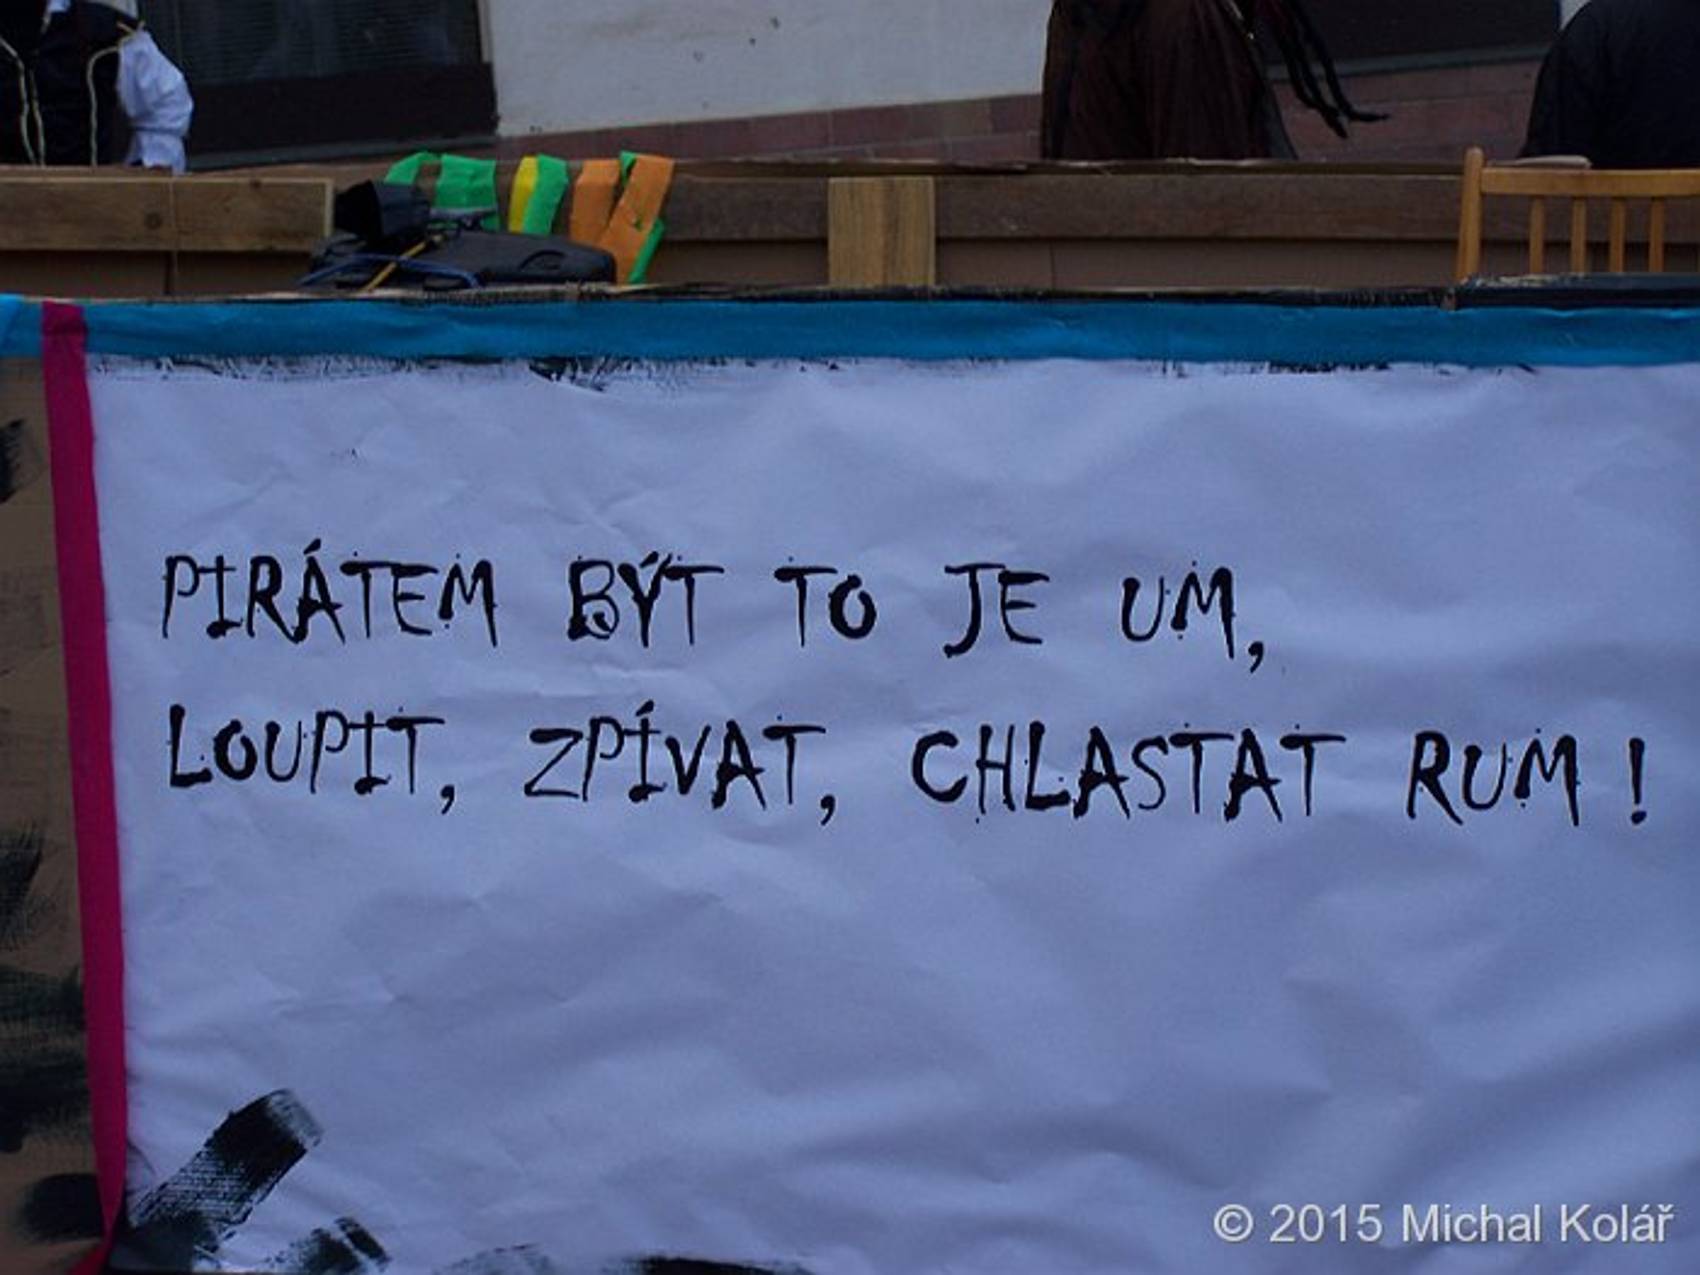 PIRÁTEM BÝT TO JE UM,
LOUPIT, ZPÍVAT, CHLASTAT RUM !
© 2015 Michal Kolář